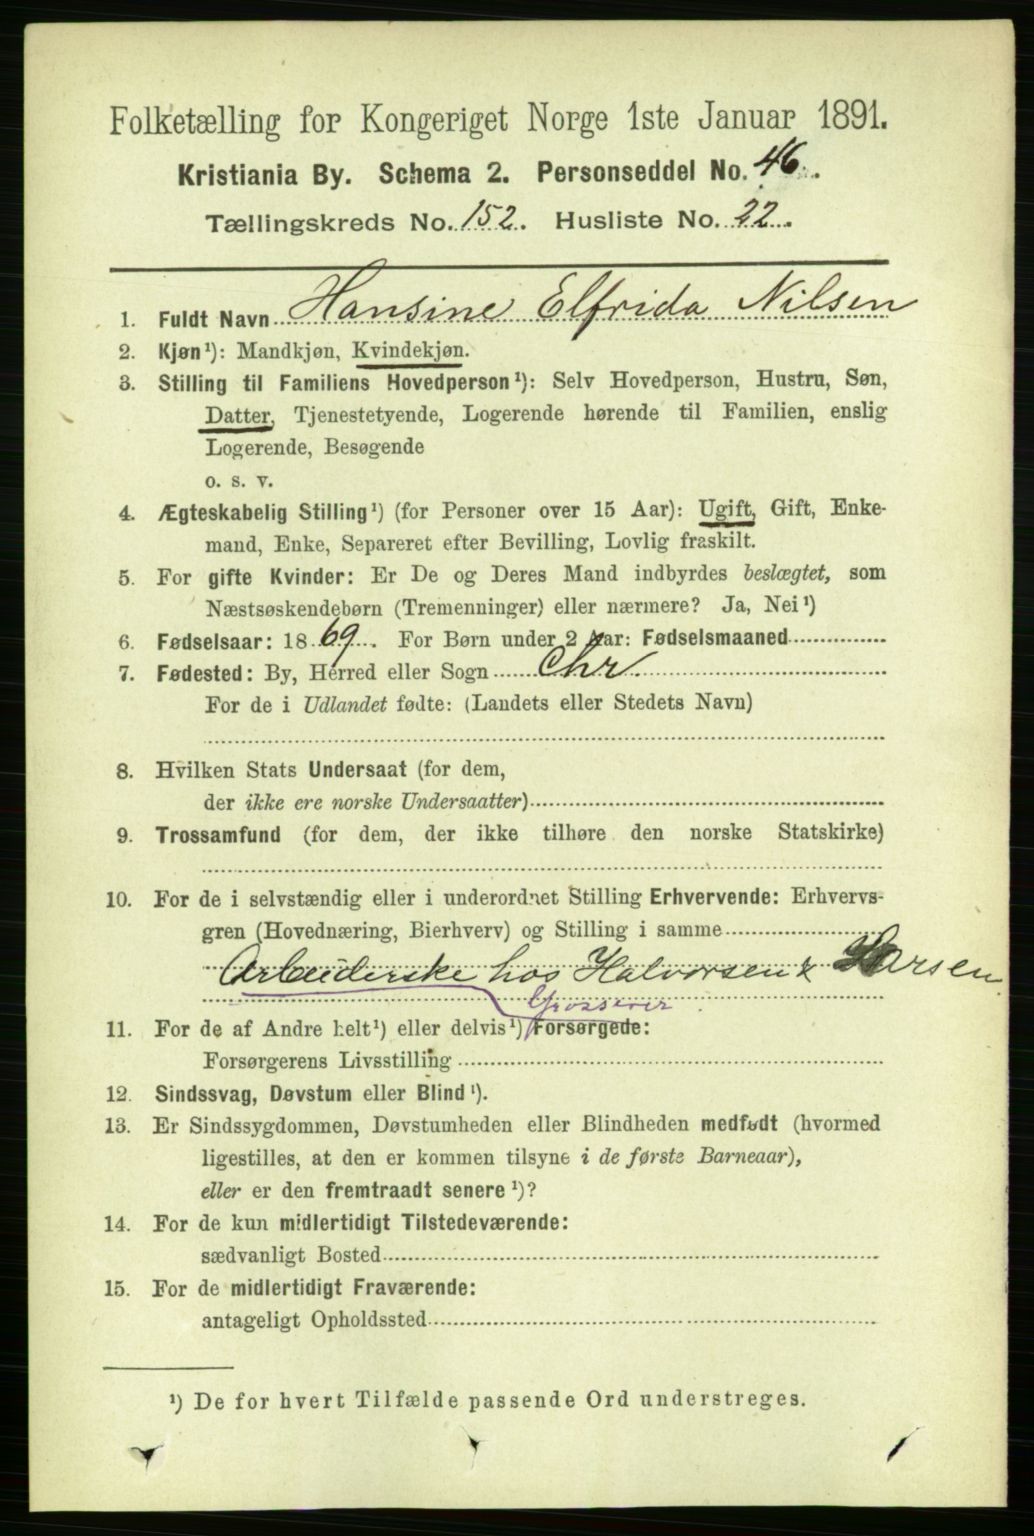 Folketælling for Kongeriget Norge 1ste Januar 1891.
Kristiania By. Schema 2. Personseddel No. 46.
Tællingskreds No. 152. Husliste No. 22.
1. Fuldt Navn Hansine Elfrida Nilsen
2. Kjøn¹): Mandkjøn, Kvindekjøn.
3. Stilling til Familiens Hovedperson¹): Selv Hovedperson, Hustru, Søn,
Datter, Tjenestetyende, Logerende hørende til Familien, enslig
Logerende, Besøgende
o. s. v.
4. Ægteskabelig Stilling¹) (for Personer over 15 Aar): Ugift, Gift, Enke-
mand, Enke, Separeret efter Bevilling, Lovlig fraskilt.
5. For gifte Kvinder: Er De og Deres Mand indbyrdes beslægtet, som
Næstsøskendebørn (Tremenninger) eller nærmere? Ja, Nei¹)
6. Fødselsaar: 1869. For Børn under 2 Aar: Fødselsmaaned
7. Fødested: By, Herred eller Sogn Chr.
For de i Udlandet fødte: (Landets eller Stedets Navn)
8. Hvilken Stats Undersaat (for dem,
der ikke ere norske Undersaatter)
9. Trossamfund (for dem, der ikke tilhøre den norske Statskirke)
10. For de i selvstændig eller i underordnet Stilling Erhvervende: Erhvervs-
gren (Hovednæring, Bierhverv) og Stilling i samme
Arbeiderske hos Halvorsen & Larsen.
Grosserer
11. For de af Andre helt¹) eller delvis¹) Forsørgede:
Forsørgerens Livsstilling
12. Sindssvag, Døvstum eller Blind¹).
13. Er Sindssygdommen, Døvstumheden eller Blindheden medfødt (hvormed
ligestilles, at den er kommen tilsyne i de første Barneaar),
eller er den fremtraadt senere¹)?
14. For de kun midlertidigt Tilstedeværende:
sædvanligt Bosted
15. For de midlertidigt Fraværende:
antageligt Opholdssted
¹) De for hvert Tilfælde passende Ord understreges.